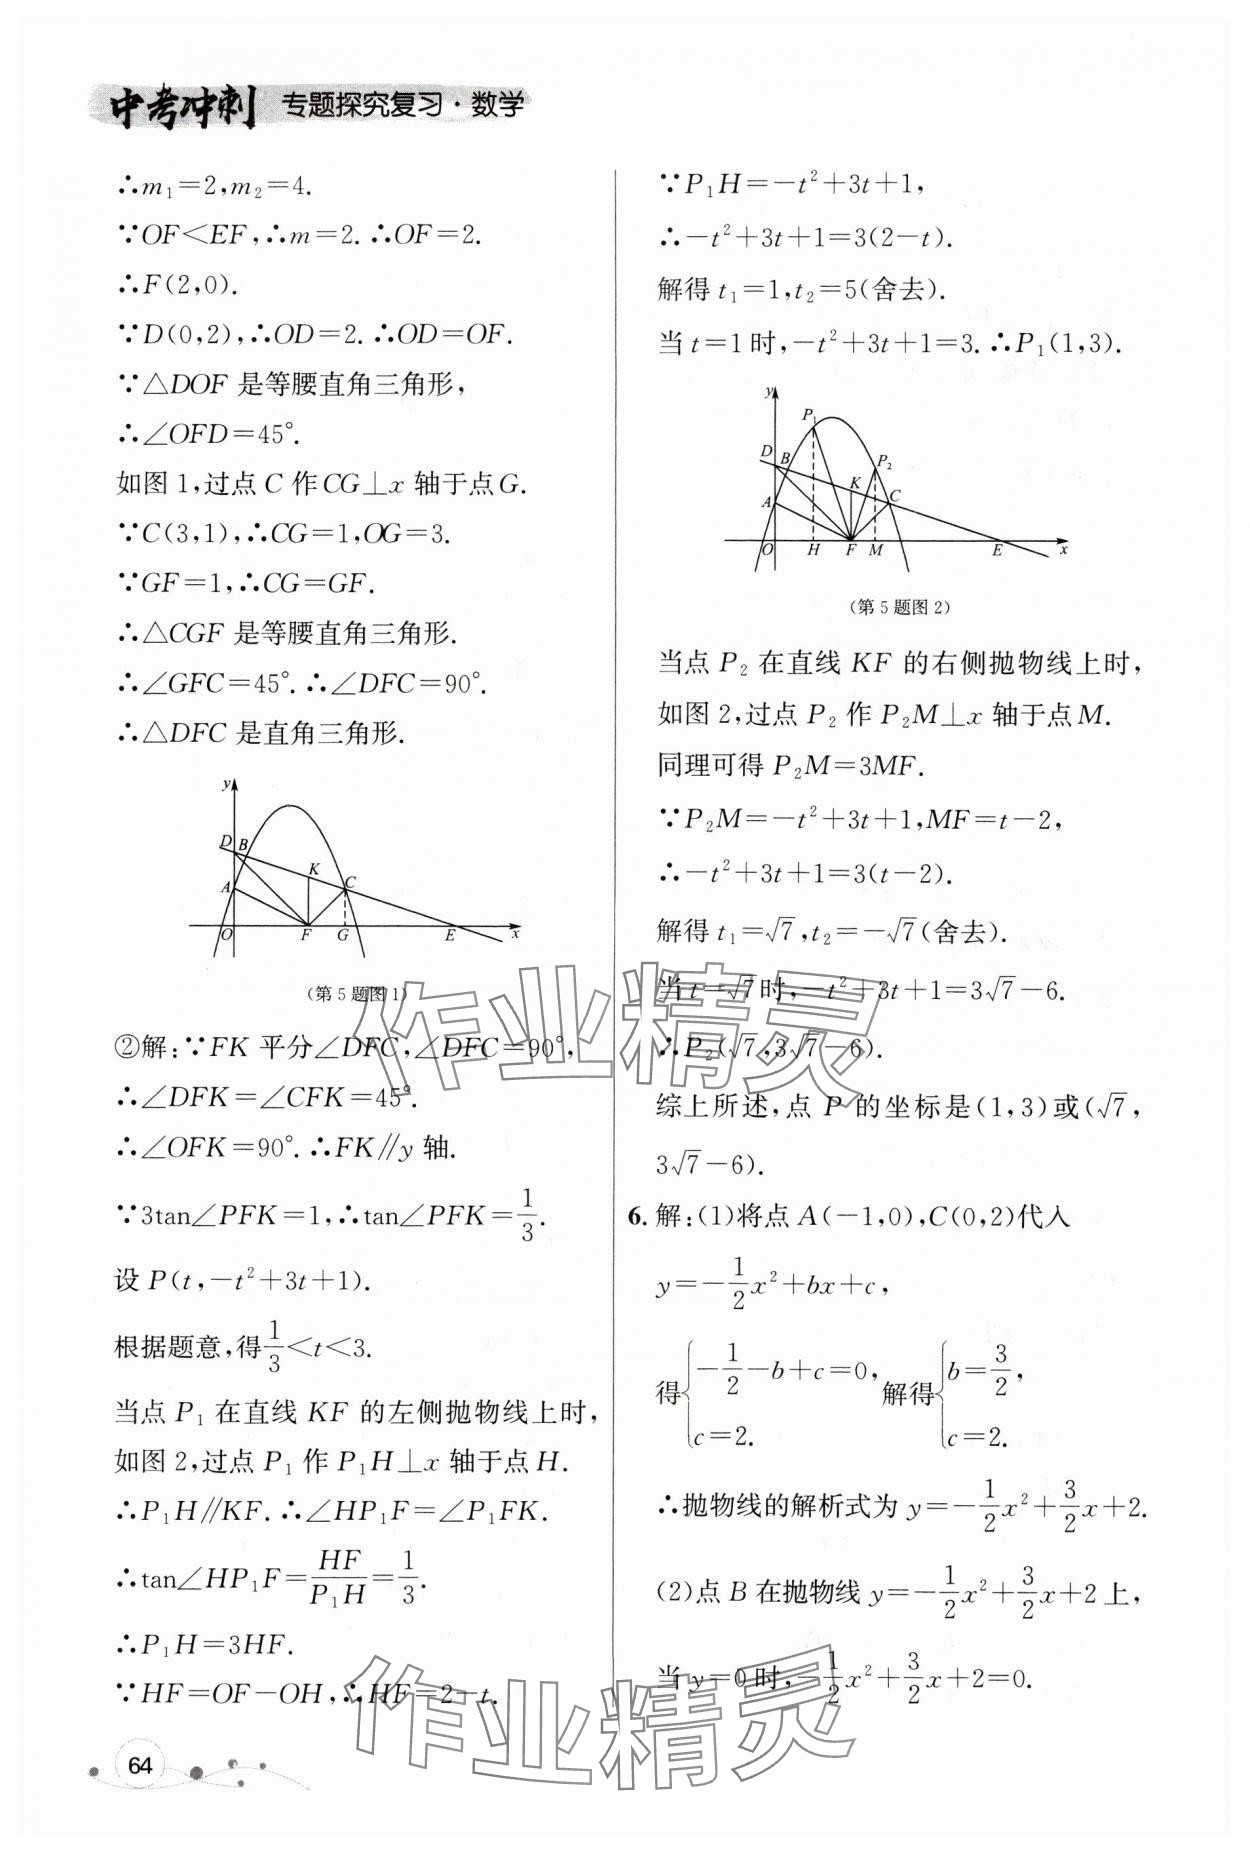 中考冲刺 专题探究复习·数学
∴m₁=2,m₂=4.
∵OF<EF,∴m=2.∴OF=2.
∴F(2,0).
∵D(0,2),∴OD=2.∴OD=OF.
∵△DOF 是等腰直角三角形,
∴∠OFD=45°.
如图 1,过点 C 作 CG⊥x 轴于点 G.
∵C(3,1),∴CG=1,OG=3.
∵GF=1,∴CG=GF.
∴△CGF 是等腰直角三角形.
∴∠GFC=45°.∴∠DFC=90°.
∴△DFC 是直角三角形.
y
D B
K
A C
O F G E x
(第 5 题图 1)
②解:∵FK 平分∠DFC,∠DFC=90°,
∴∠DFK=∠CFK=45°.
∴∠OFK=90°.∴FK∥y 轴.
∵3tan∠PFK=1,∴tan∠PFK=1/3.
设 P(t,-t²+3t+1).
根据题意,得1/3<t<3.
当点 P₁ 在直线 KF 的左侧抛物线上时,
如图 2,过点 P₁ 作 P₁H⊥x 轴于点 H.
∴P₁H∥KF.∴∠HP₁F=∠P₁FK.
∴tan∠HP₁F=HF/P₁H=1/3.
∴P₁H=3HF.
∵HF=OF-OH,∴HF=2-t.
∵P₁H=-t²+3t+1,
∴-t²+3t+1=3(2-t).
解得 t₁=1,t₂=5(舍去).
当 t=1 时,-t²+3t+1=3.∴P₁(1,3).
y
P₁
D B P₂
K
A C
O H F M E x
(第 5 题图 2)
当点 P₂ 在直线 KF 的右侧抛物线上时,
如图 2,过点 P₂ 作 P₂M⊥x 轴于点 M.
同理可得 P₂M=3MF.
∵P₂M=-t²+3t+1,MF=t-2,
∴-t²+3t+1=3(t-2).
解得 t₁=√7,t₂=-√7(舍去).
当 t=√7时,-t²+3t+1=3√7-6.
∴P₂(√7,3√7-6).
综上所述,点 P 的坐标是(1,3)或(√7,
3√7-6).
6.解:(1)将点 A(-1,0),C(0,2)代入
y=-1/2x²+bx+c,
得{-1/2-b+c=0, c=2. 解得{b=3/2, c=2.
∴抛物线的解析式为 y=-1/2x²+3/2x+2.
(2)点 B 在抛物线 y=-1/2x²+3/2x+2 上,
当 y=0 时,-1/2x²+3/2x+2=0.
作业精灵
作业精灵
64